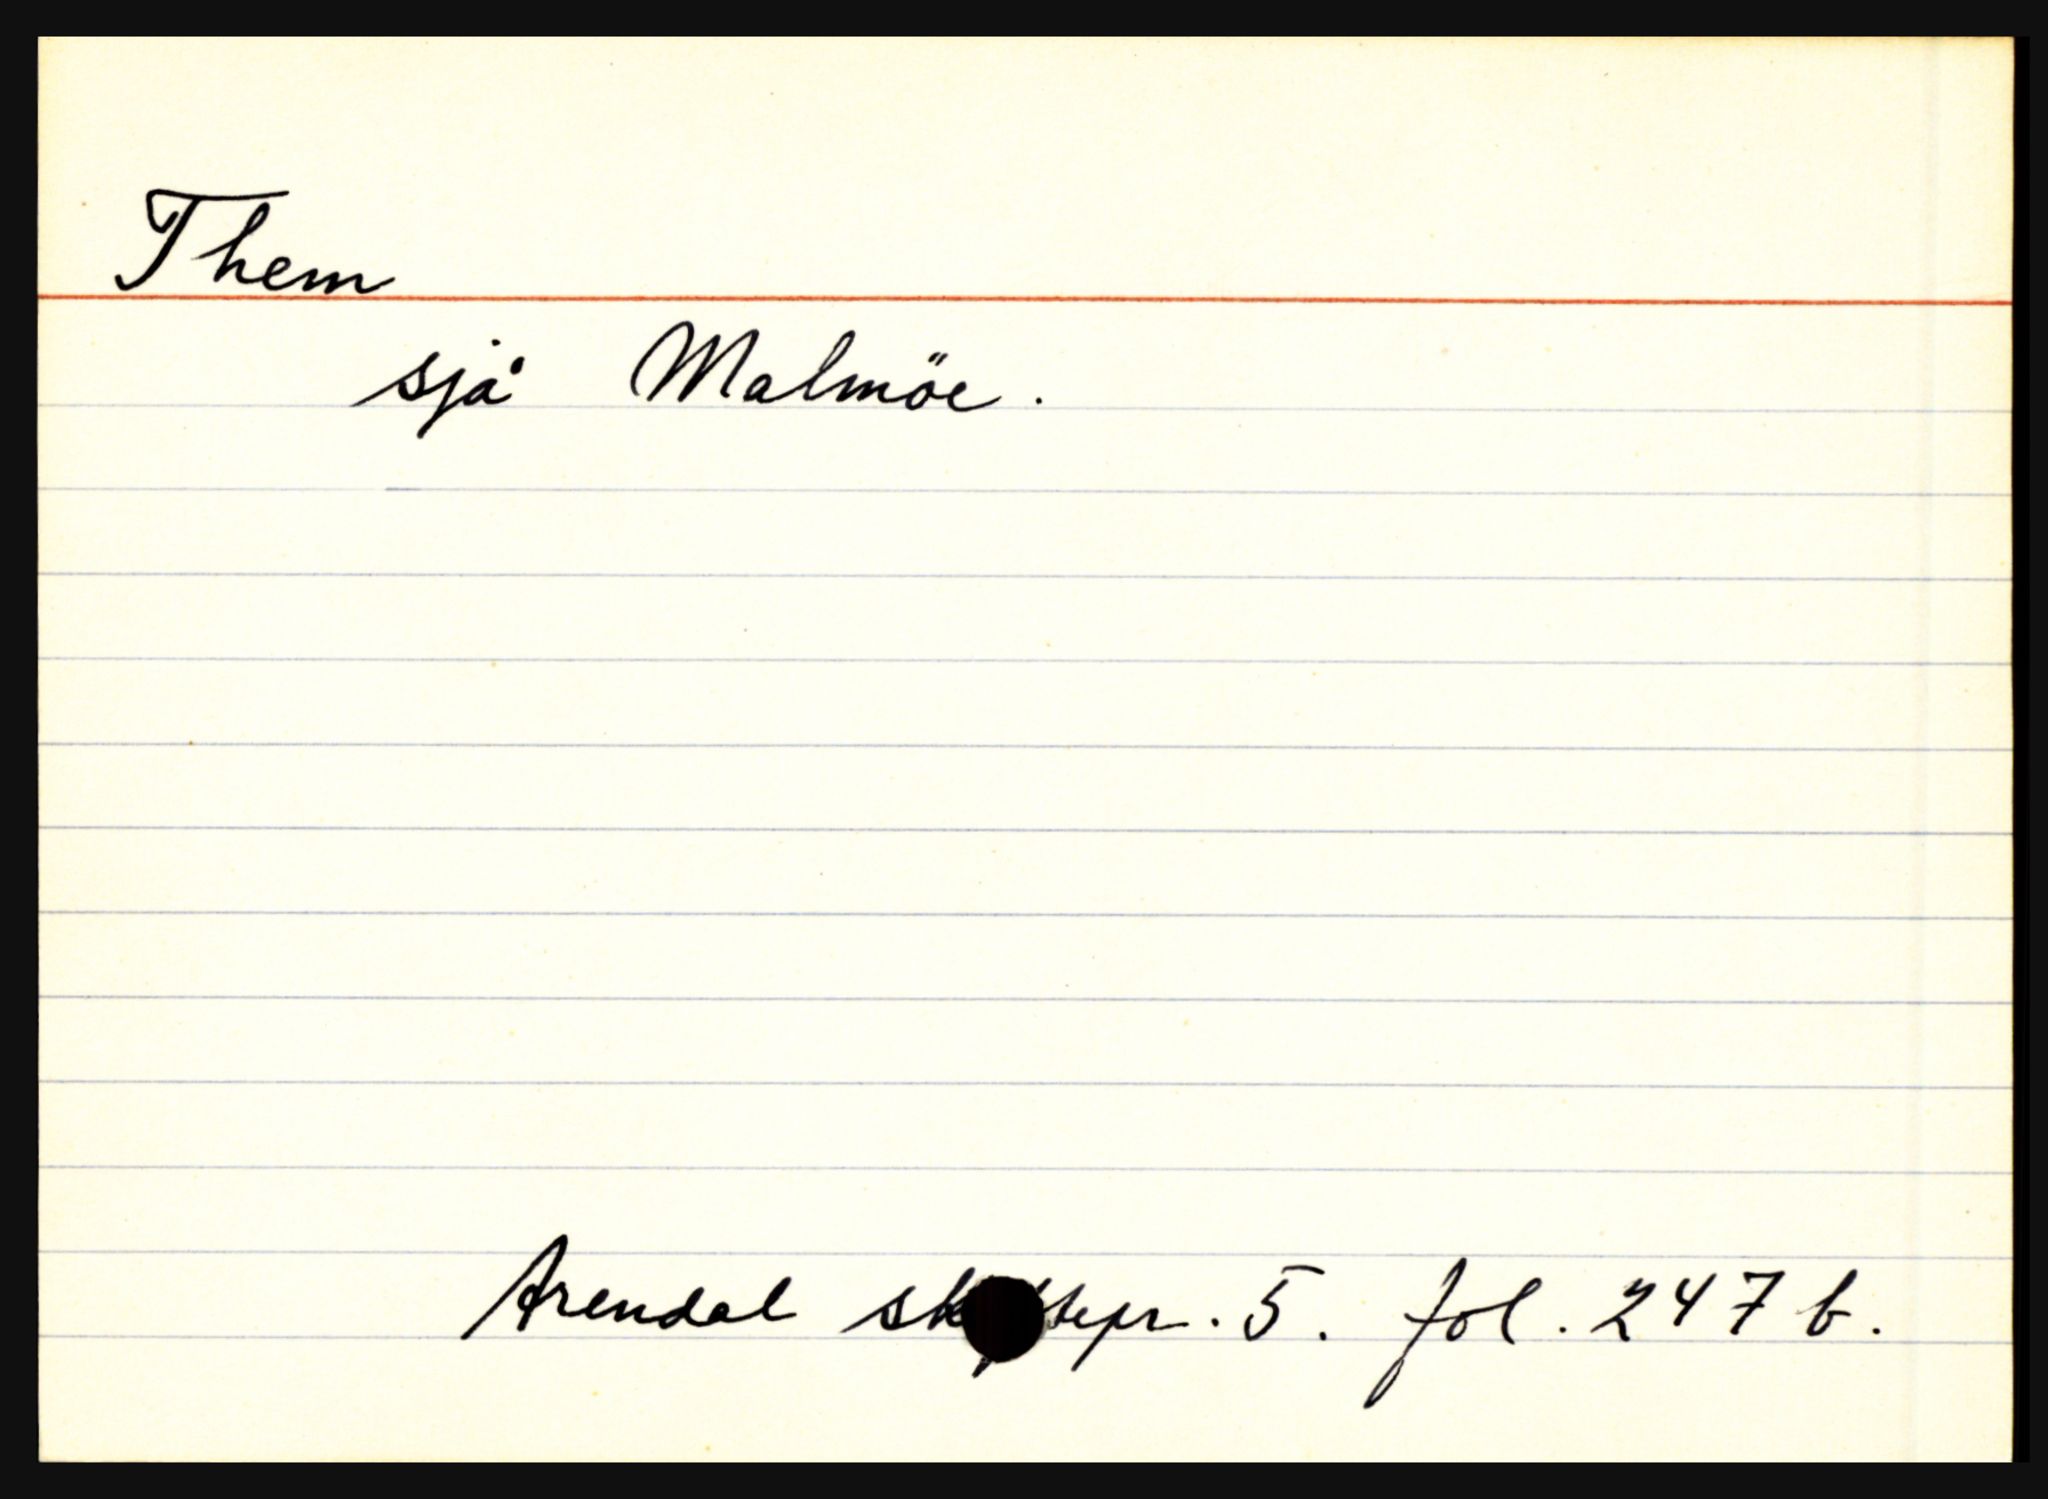 Them
sjå Malmöe.
Arendal 5. fol. 247 b.